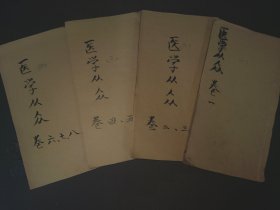 医学从众
卷六、七、八
医学从众
卷四、五
医学从众
卷二、三
医学从众
卷一